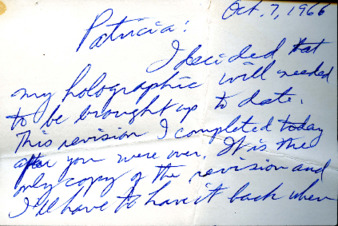 Oct. 7, 1966
Patricia:
I decided that
my holographic will needed
to be brought up to date.
This revision I completed today
after you were over. It is the
only copy of the revision and
I'll have to have it back when